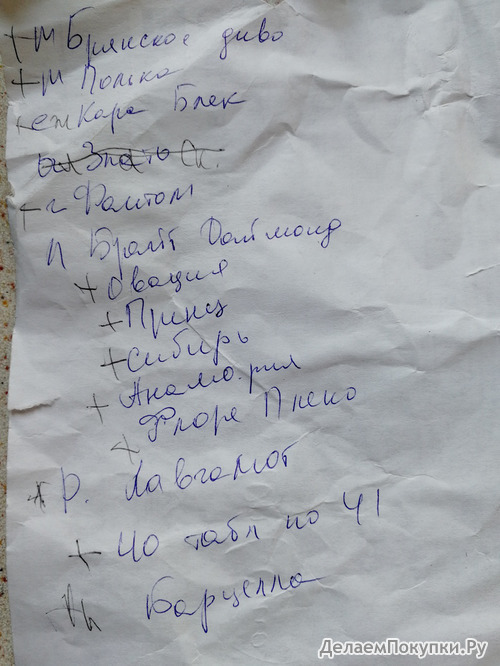 + м Брянское диво
+ м Полка
+ еж Кара Блек
+ г Фантом
п Брайт Даймонд
+ Овация
+ Принц
+ Сибирь
+ Анамо.рил
+ Флоре Плено
+ р. Лавгамот
+ 40 табл по 41
Барцелла
ДелаемПокупки.Ру